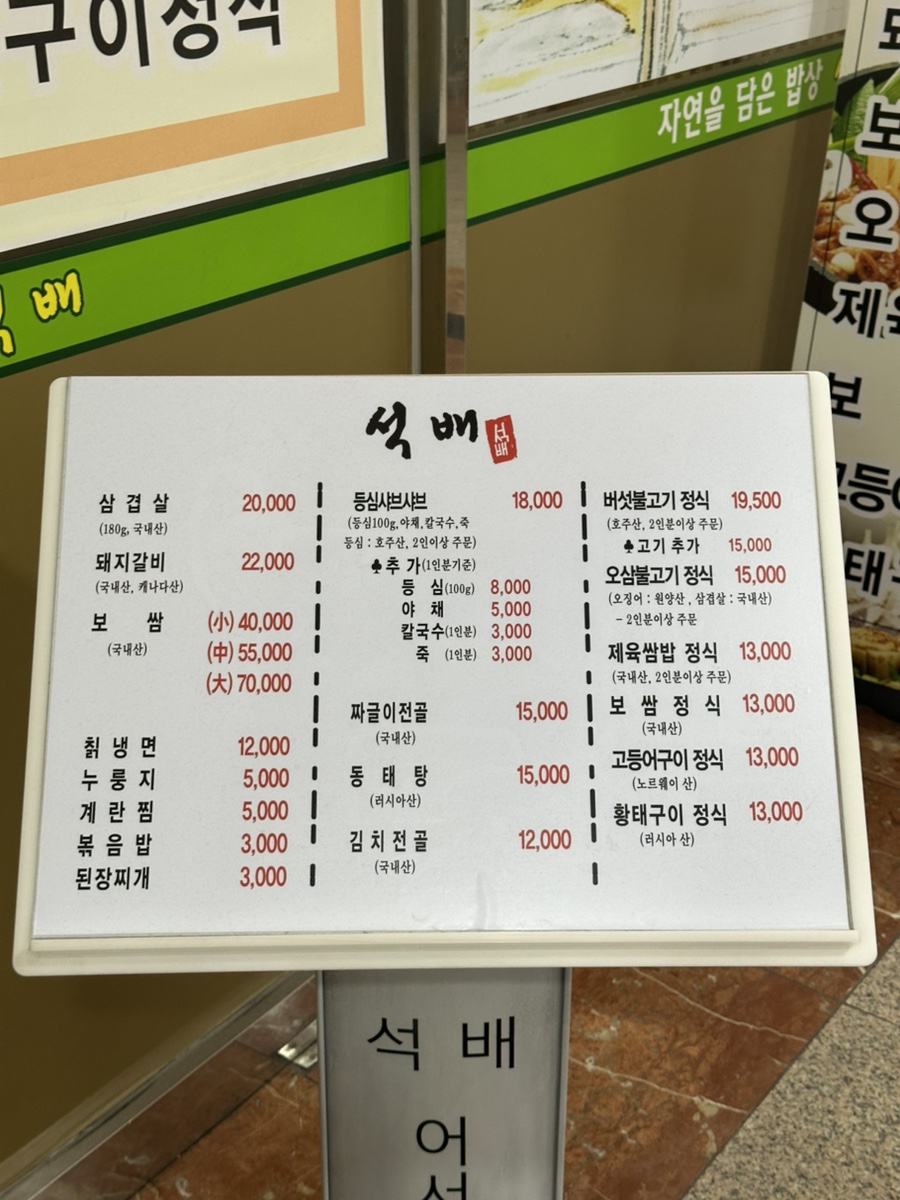 구이정식
자연을 담은 밥상
배
보
오
제육
보
고등어
태
석 배
석배
삼 겹 살 20,000
(180g, 국내산)
돼지갈비 22,000
(국내산, 캐나다산)
보 쌈 (小) 40,000
(국내산) (中) 55,000
(大) 70,000
칡 냉 면 12,000
누 룽 지 5,000
계 란 찜 5,000
볶 음 밥 3,000
된장찌개 3,000
등심샤브샤브 18,000
(등심100g,야채,칼국수,죽
등심 : 호주산, 2인이상 주문)
♣추 가(1인분기준)
등 심(100g) 8,000
야 채 5,000
칼국수(1인분) 3,000
죽 (1인분) 3,000
짜글이전골 15,000
(국내산)
동 태 탕 15,000
(러시아산)
김치전골 12,000
(국내산)
버섯불고기 정식 19,500
(호주산, 2인분이상 주문)
♣고기 추가 15,000
오삼불고기 정식 15,000
(오징어 : 원양산 , 삼겹살 : 국내산)
- 2인분이상 주문
제육쌈밥 정식 13,000
(국내산, 2인분이상 주문)
보 쌈 정 식 13,000
(국내산)
고등어구이 정식 13,000
(노르웨이 산)
황태구이 정식 13,000
(러시아 산)
석 배
어